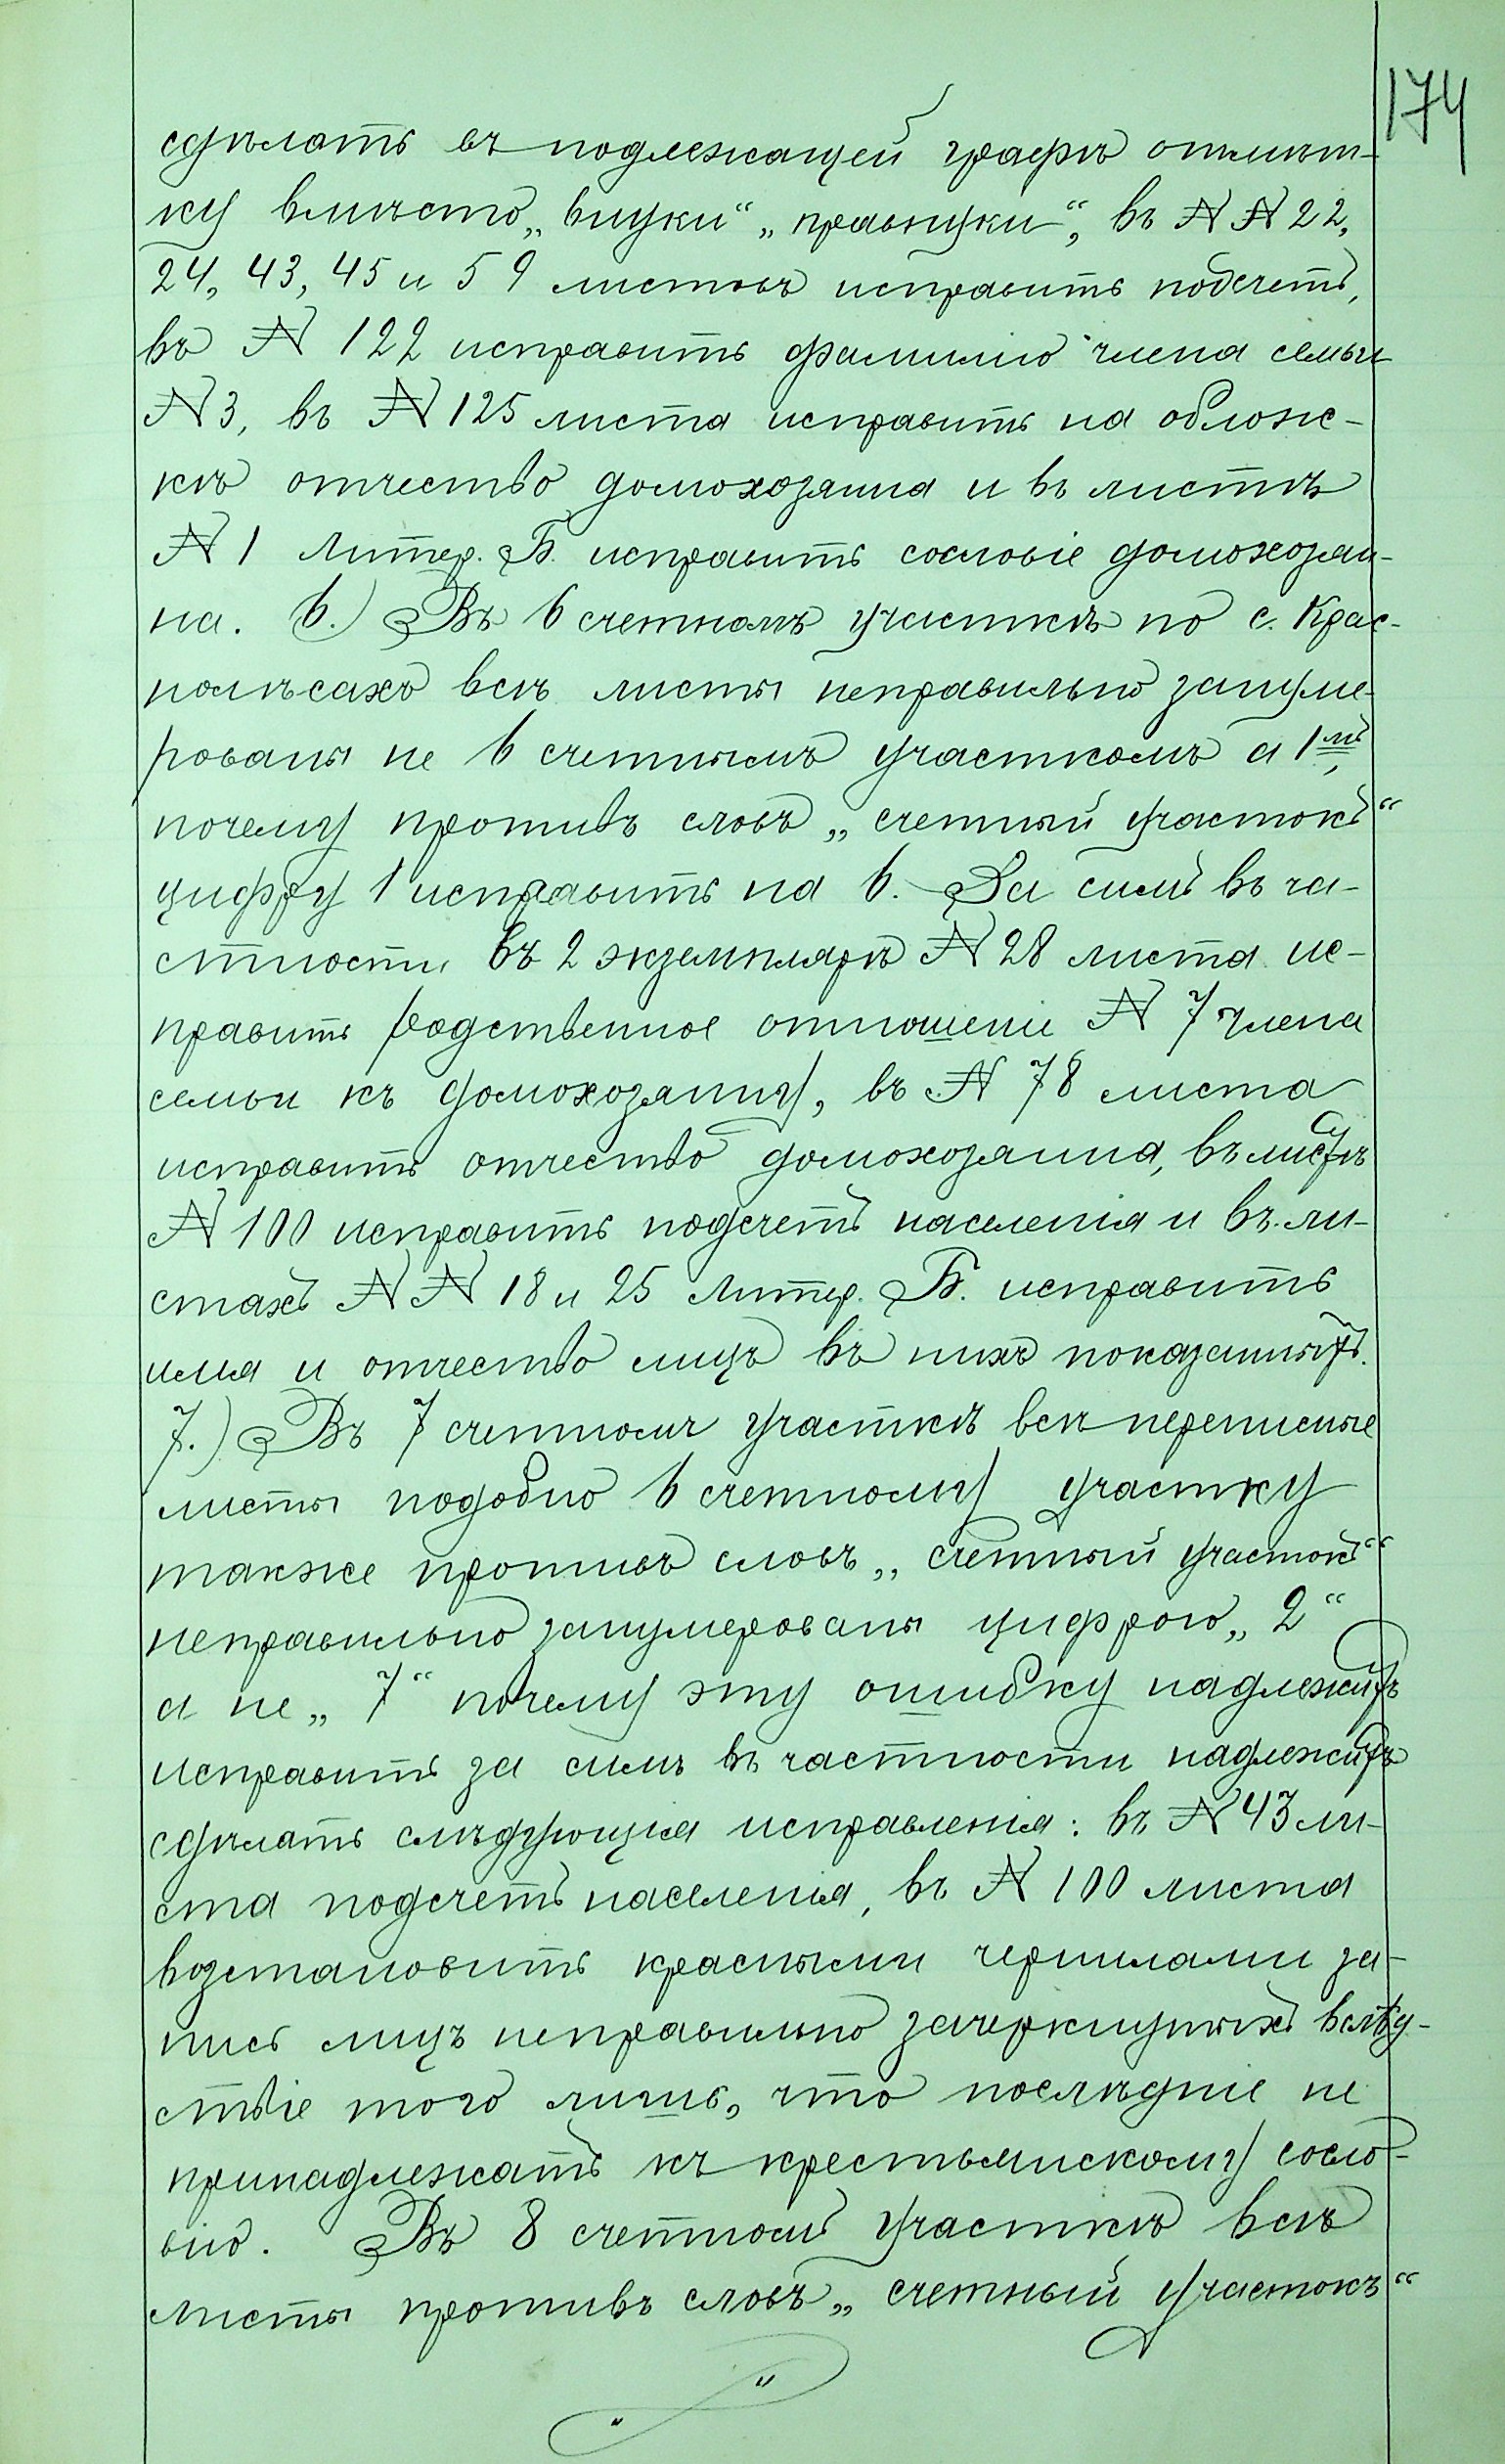 174
сдѣлать въ подлежащей графѣ отмѣт-
ку вмѣсто „внуки“ „правнуки“, въ № № 22,
24, 43, 45 и 59 листовъ исправить подсчетъ,
въ № 122 исправить фамилію члена семьи
№ 3, въ № 125 листа исправить на облож-
кѣ отчество домохозяина и въ листѣ
№ 1 Литер. Б. исправить сословіе домохозяи-
на. 6.) Въ 6 счетномъ участкѣ по с. Крас-
нолѣсахъ всѣ листы неправильно зануме-
рованы не 6 счетнымъ участкомъ а 1мъ,
почему противъ словъ „счетный участокъ“
цифру 1 исправить на 6. За симъ въ ча-
стности въ 2 экземплярѣ № 28 листа ис-
править родственное отношеніе № 7 члена
семьи къ домохозяину, въ № 78 листа
исправить отчество домохозяина, въ листѣ
№ 100 исправить подсчетъ населенія и въ ли-
стахъ № № 18 и 25 Литер. Б. исправить
имя и отчество лицъ въ нихъ показанныхъ.
7.) Въ 7 счетномъ участкѣ всѣ переписные
листы подобно 6 счетному участку
также противъ словъ „счетный участокъ“
неправильно занумерованы цифрою „2“
а не „7“ почему эту ошибку надлежитъ
исправить за симъ въ частности надлежитъ
сдѣлать слѣдующія исправленія: въ № 43 ли-
ста подсчетъ населенія, въ № 100 листа
возстановить красными чернилами за-
пись лицъ неправильно зачеркнутыхъ вслѣд-
ствіе того лишь, что послѣдніе не
принадлежатъ къ крестьянскому сосло-
вію. Въ 8 счетномъ участкѣ всѣ
листы противъ словъ „счетный участокъ“